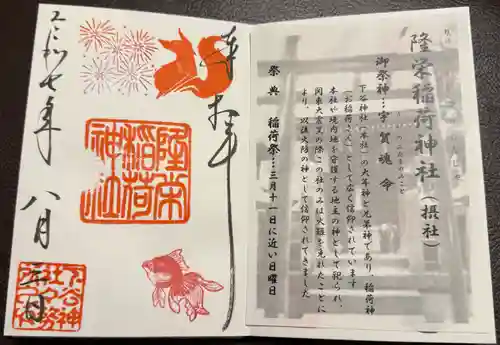 隆栄稲荷神社(摂社)
御祭神…宇賀魂命
うかのみたまのみこと
下谷神社(本社)の大年神と兄弟神であり、稲荷神
(お稲荷さん)として広く信仰されています
本社や境内地を守護する地主の神として祀られ、
関東大震災の際この社のみは火難を免れたことに
より、以後火防の神として信仰されてきました
祭典 稲荷祭…三月十一日に近い日曜日
奉拝
隆栄
稲荷
神社
令和七年八月三日